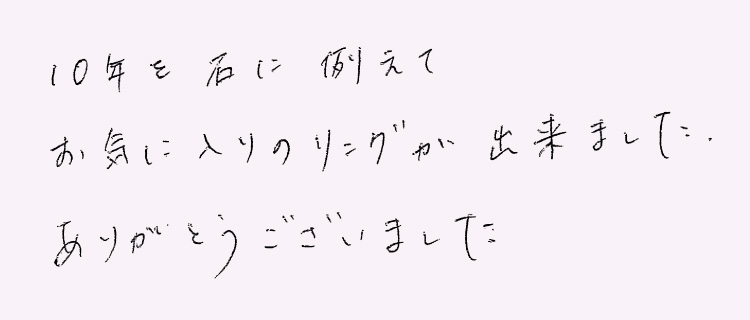 10年を石に例えて
お気に入りのリングが出来ました.
ありがとうございました